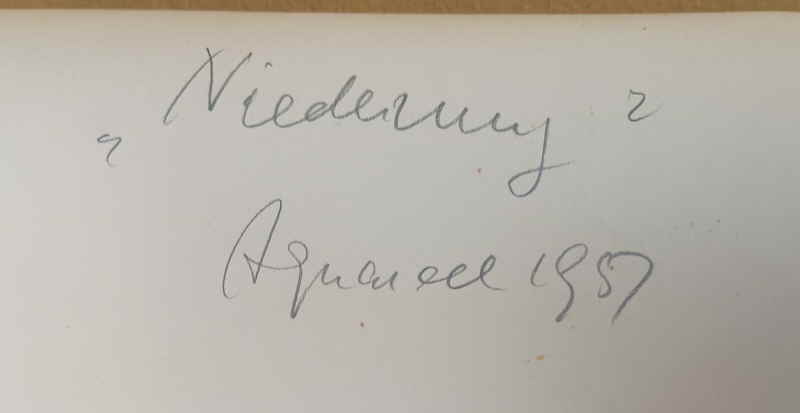 „Niederung"
Aquarell 1957